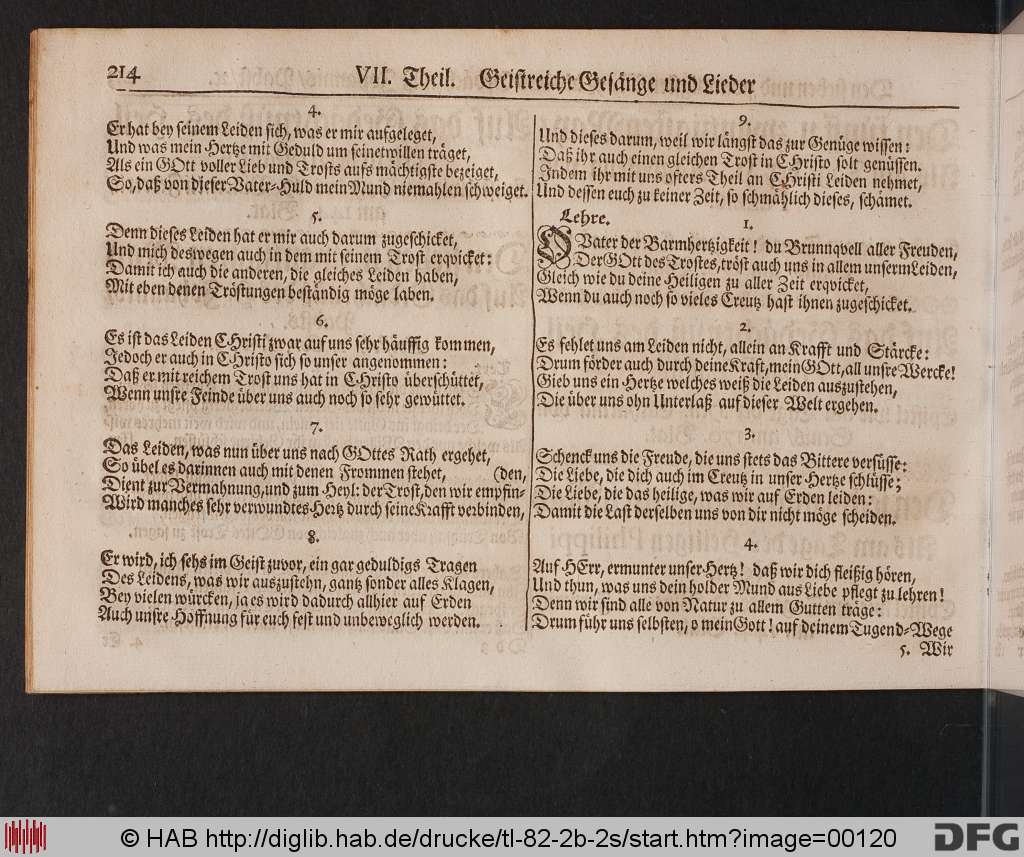 214
VII. Theil. Geistreiche Gesänge und Lieder
4.
Er hat bey seinem Leiden sich, was er mir aufgeleget,
Und was mein Hertze mit Geduld um seinetwillen träget,
Als ein GOtt voller Lieb und Trosts aufs mächtigste bezeiget,
So, daß von dieser Vater-Huld mein Mund niemahlen schweiget.
5.
Denn dieses Leiden hat er mir auch darum zugeschicket,
Und mich deswegen auch in dem mit seinem Trost erqvicket:
Damit ich auch die anderen, die gleiches Leiden haben,
Mit eben denen Tröstungen beständig möge laben.
6.
Es ist das Leiden CHristi zwar auf uns sehr häuffig kommen,
Jedoch er auch in CHristo sich so unser angenommen:
Daß er mit reichem Trost uns hat in CHristo überschüttet,
Wenn unsre Feinde über uns auch noch so sehr gewüttet.
7.
Das Leiden, was nun über uns nach GOttes Rath ergehet,
So übel es darinnen auch mit denen Frommen stehet, (den,
Dient zur Vermahnung, und zum Heyl: der Trost, den wir empfin-
Wird manches sehr verwundtes Hertz durch seine Krafft verbinden,
8.
Er wird, ich sehs im Geist zuvor, ein gar geduldigs Tragen
Des Leidens, was wir auszustehn, gantz sonder alles Klagen,
Bey vielen würcken, ja es wird dadurch allhier auf Erden
Auch unsre Hoffnung für euch fest und unbeweglich werden.
9.
Und dieses darum, weil wir längst das zur Genüge wissen:
Daß ihr auch einen gleichen Trost in CHristo solt genüssen.
Indem ihr mit uns ofters Theil an CHristi Leiden nehmet,
Und dessen euch zu keiner Zeit, so schmählich dieses, schämet.
Lehre.
1.
O Vater der Barmhertzigkeit! du Brunnqvell aller Freuden,
Der GOtt des Trostes, tröst auch uns in allem unserm Leiden,
Gleich wie du deine Heiligen zu aller Zeit erqvicket,
Wenn du auch noch so vieles Creutz hast ihnen zugeschicket.
2.
Es fehlet uns am Leiden nicht, allein an Krafft und Stärcke:
Drum förder auch durch deine Kraft, mein GOtt, all unsre Wercke!
Gieb uns ein Hertze welches weiß die Leiden auszustehen,
Die über uns ohn Unterlaß auf dieser Welt ergehen.
3.
Schenck uns die Freude, die uns stets das Bittere versüsse:
Die Liebe, die dich auch im Creutz in unser Hertze schlüsse;
Die Liebe, die das heilige, was wir auf Erden leiden:
Damit die Last derselben uns von dir nicht möge scheiden.
4.
Auf HErr, ermunter unser Hertz! daß wir dich fleißig hören,
Und thun, was uns dein holder Mund aus Liebe pflegt zu lehren!
Denn wir sind alle von Natur zu allem Gutten träge:
Drum führ uns selbsten, o mein Gott! auf deinem Tugend-Wege
5. Wir
© HAB http://diglib.hab.de/drucke/tl-82-2b-2s/start.htm?image=00120
DFG